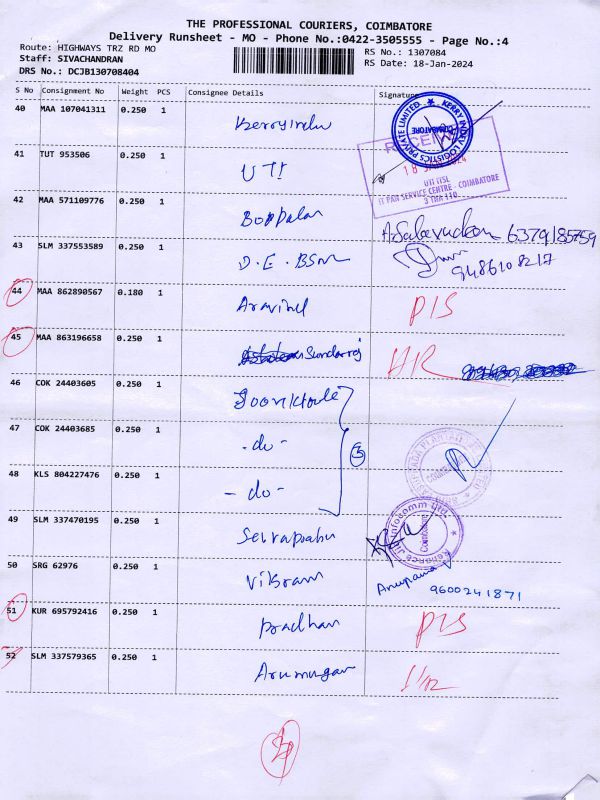 THE PROFESSIONAL COURIERS, COIMBATORE
Delivery Runsheet - MO - Phone No.:0422-3505555 - Page No.:4
Route: HIGHWAYS TRZ RD MO
RS No.: 1307084
Staff: SIVACHANDRAN
RS Date: 18-Jan-2024
DRS No.: DCJB130708404
S No Consignment No Weight PCS Consignee Details Signature
40 MAA 107041311 0.250 1 Kerry Indev
KERRY INDEV LOGISTICS PRIVATE LIMITED ★ COIMBATORE
41 TUT 953506 0.250 1 UTI
18 JAN 2024
UTI ITSL
IT PAN SERVICE CENTRE - COIMBATORE
42 MAA 571109776 0.250 1 6379185759
43 SLM 337553589 0.250 1 D.E. BSNL 9486108217
44 MAA 862890567 0.180 1 Aravind P/S
45 MAA 863196658 0.250 1 Sundarraj
46 COK 24403605 0.250 1
47 COK 24403685 0.250 1 -do-
48 KLS 804227476 0.250 1 -do-
49 SLM 337470195 0.250 1 Selvaprabu
Reliance Jio Infocomm Ltd.
Coimbatore
50 SRG 62976 0.250 1 Vikram Anupama
9600241871
51 KUR 695792416 0.250 1 Pradhan P/S
52 SLM 337579365 0.250 1 Arumugam